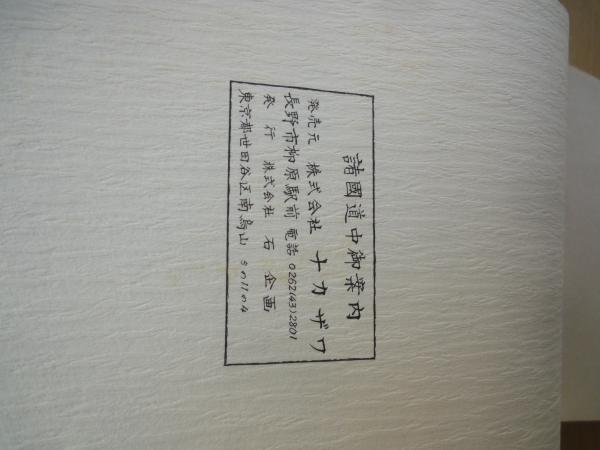 諸國道中御案内
発売元 株式会社 ナカザワ
長野市柳原駅前 電話 0262(43)2801
発行 株式会社 石企画
東京都世田谷区南烏山 5の11の4